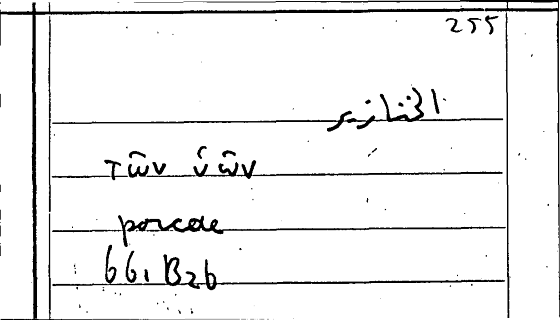 255
الخنازير
τῶν ὑῶν
porcae
661 B26